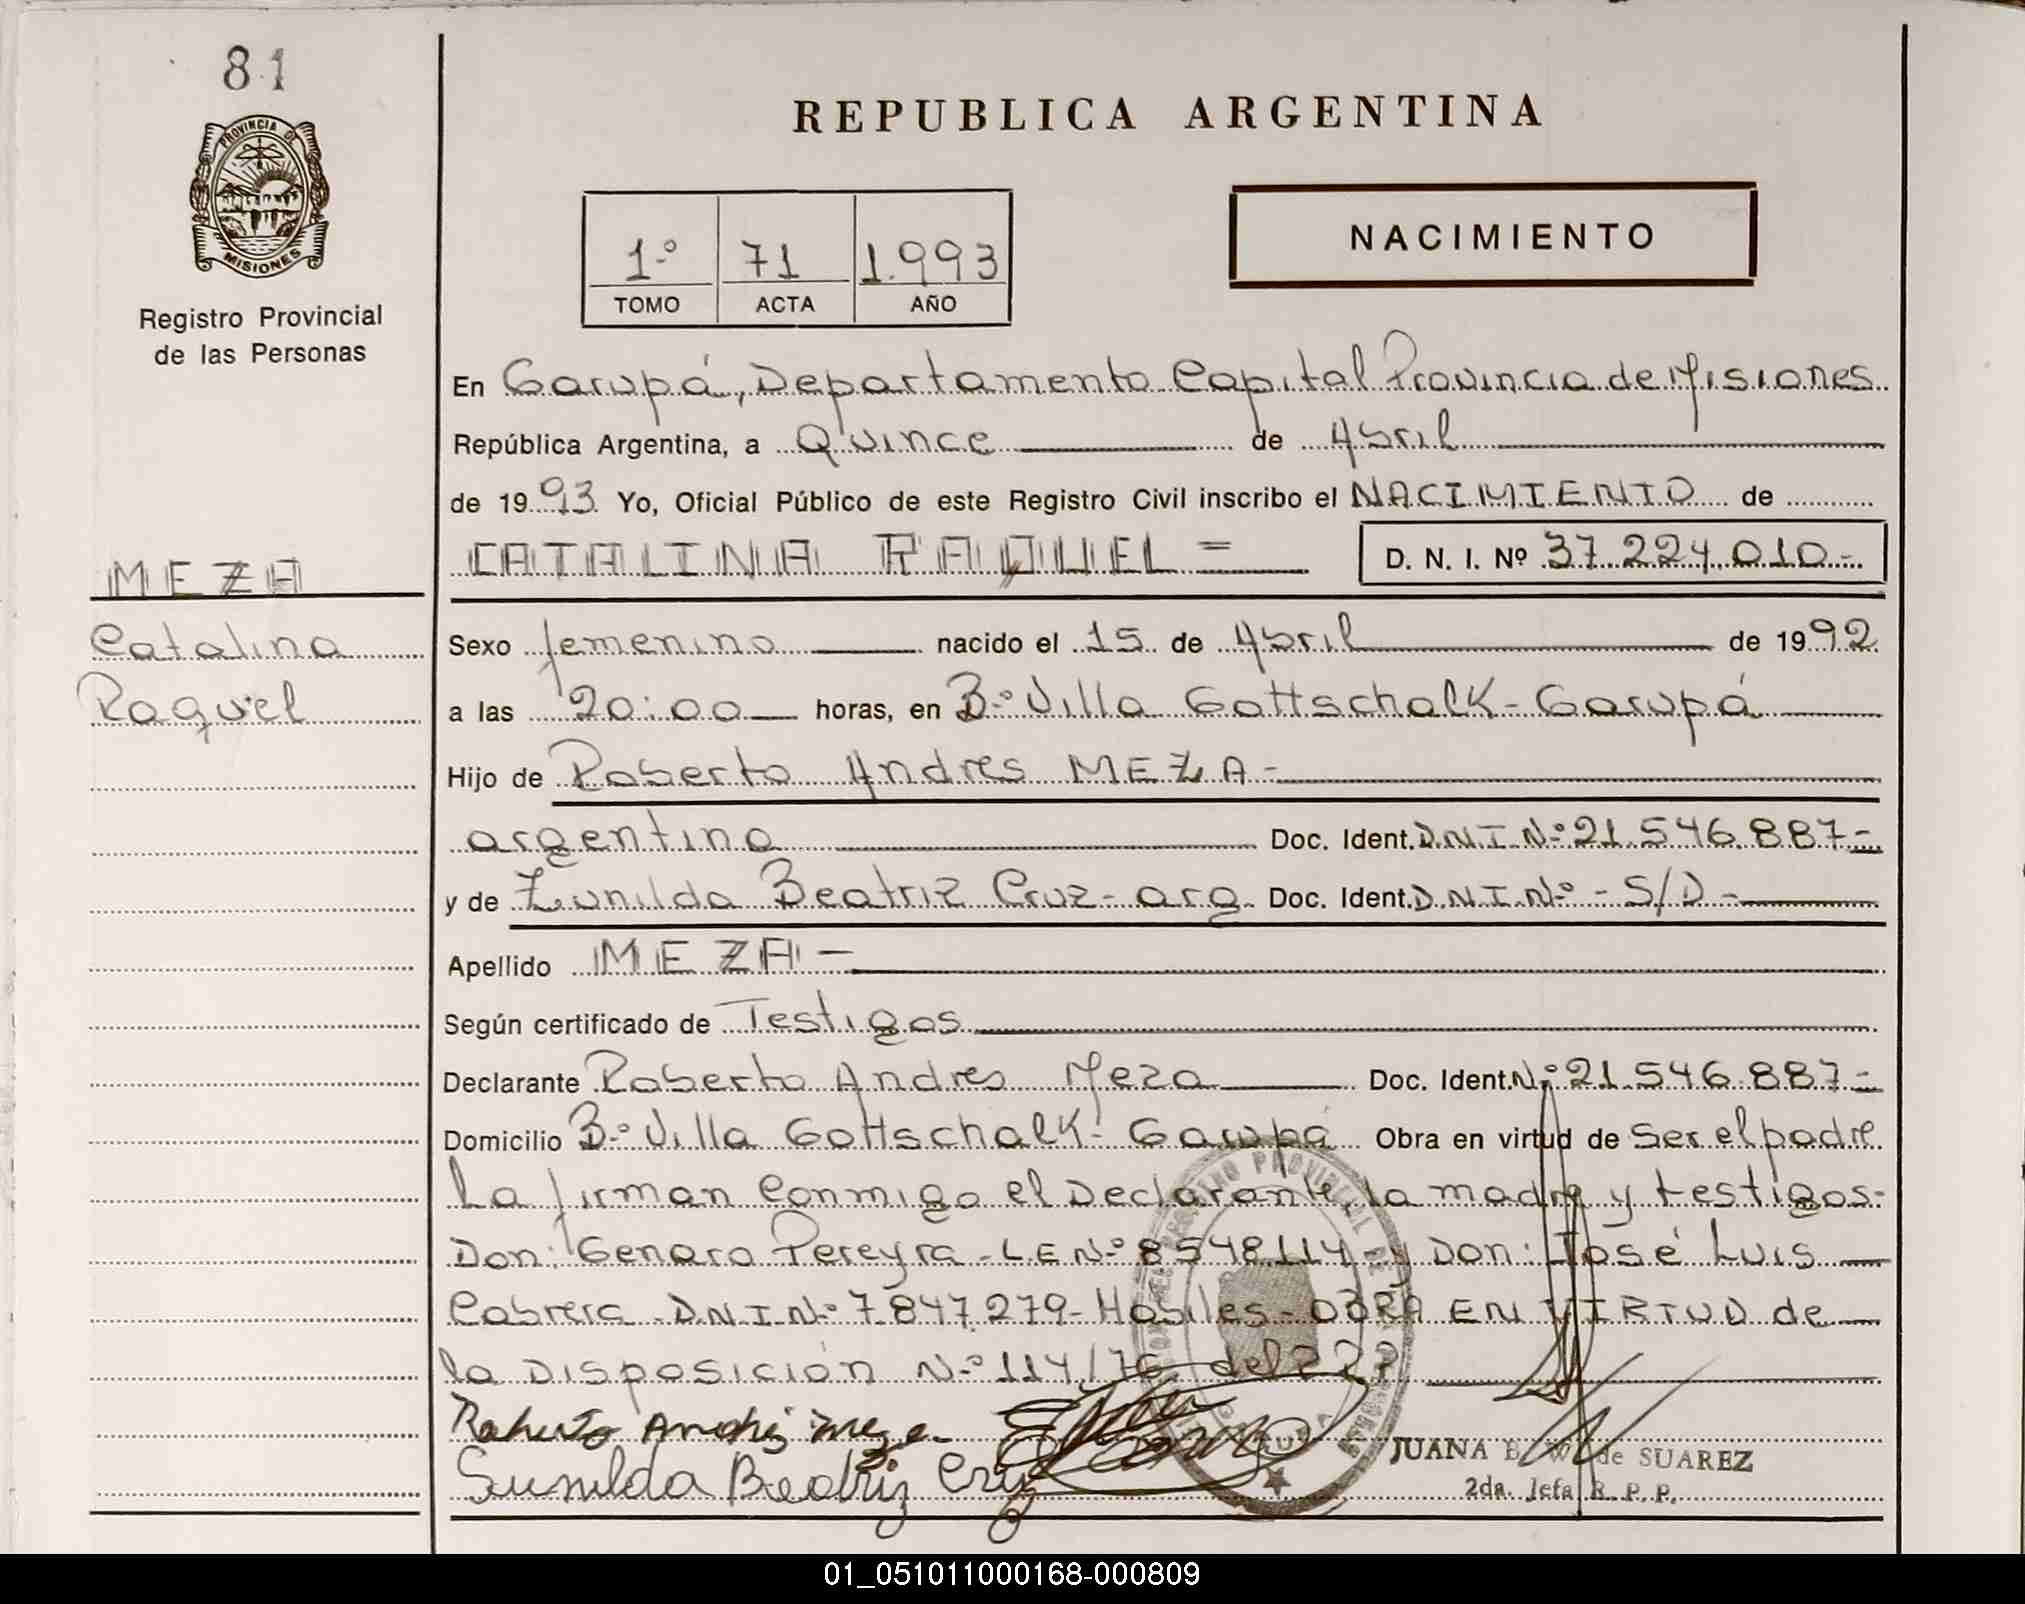 81
PROVINCIA DE
MISIONES
Registro Provincial
de las Personas
MEZA
Catalina
Raquel
REPUBLICA ARGENTINA
NACIMIENTO
1º 71 1.993
TOMO ACTA AÑO
En Garupá, Departamento Capital Provincia de Misiones
República Argentina, a Quince de Abril
de 1993 Yo, Oficial Público de este Registro Civil inscribo el NACIMIENTO de
CATALINA RAQUEL = D. N. I. Nº 37.224.010-
Sexo femenino nacido el 15 de Abril de 1992
a las 20:00 horas, en Bº Villa Gottschalk - Garupá
Hijo de Roberto Andres MEZA -
argentino Doc. Ident. D.N.I. Nº 21.546.887-
y de Zunilda Beatriz Cruz - arg. Doc. Ident. D.N.I. Nº - S/D -
Apellido MEZA -
Según certificado de Testigos
Declarante Roberto Andres Meza Doc. Ident. Nº 21.546.887-
Domicilio Bº Villa Gottschalk - Garupá Obra en virtud de Ser el padre
La firman conmigo el Declarante, la madre y testigos-
Don: Genaro Pereyra - L.E Nº 8548.114 y Don: José Luis
Cabrera D.N.I. Nº 7.847.279- Habiles - OBRA EN VIRTUD de
la Disposición Nº 114/76 del
Roberto Andrés Meza
Sunilda Beatriz Cruz
JUANA B. W. de SUAREZ
2da. Jefa R. P. P.
01_051011000168-000809